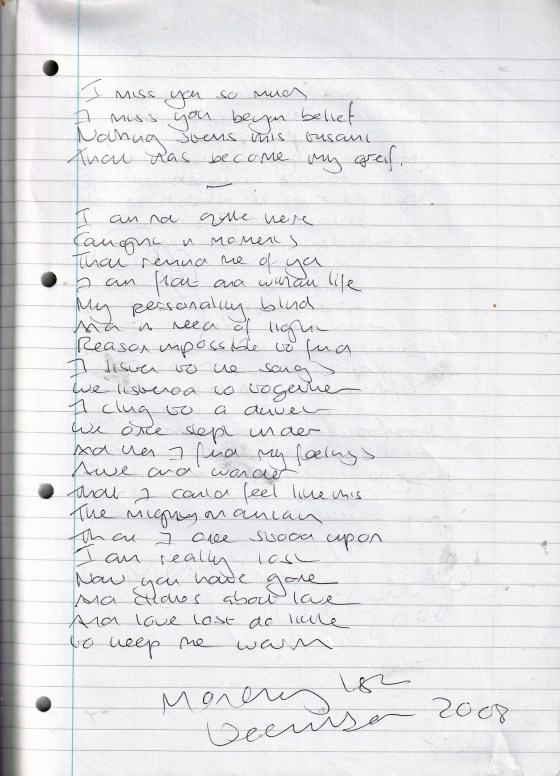 I miss you so much
I miss you beyon belief
Nothing stems this
That has become my greif.
I am not quite here
Caught in moments
That remind me of you
I am flat and without life
My personality blind
And in need of light
Reason impossible to find
I listen to the songs
We listened to together
I cling to a duvet
We once slept under
And yes I find my feelings
Alive and wonder
That I could feel like this
The mighty mountain
That I once stood upon
I am really lost
Now you have gone
And stories about love
And love lost do little
to keep me warm
Monday 1st
December 2008